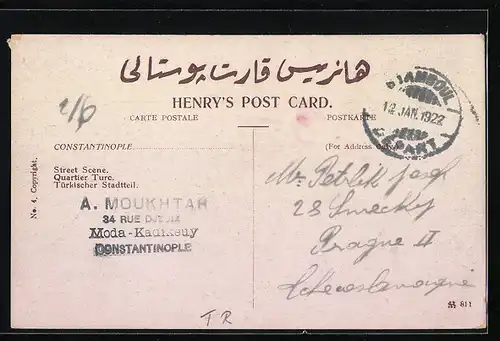 هانريس قارت پوستالى
HENRY'S POST CARD.
CARTE POSTALE
POSTKARTE
STAMBOUL
12 JAN. 1922
DÉPART 1
CONSTANTINOPLE
(For Address Only)
Street Scene.
Quartier Turc.
Türkischer Stadtteil.
No. 4, Copyright.
A. MOUKHTAR
34 RUE
Moda-Kadikeuy
CONSTANTINOPLE
Mr Petrlik Josef
28 Smečky
Prague II
Tchecoslovaquie
T R
811